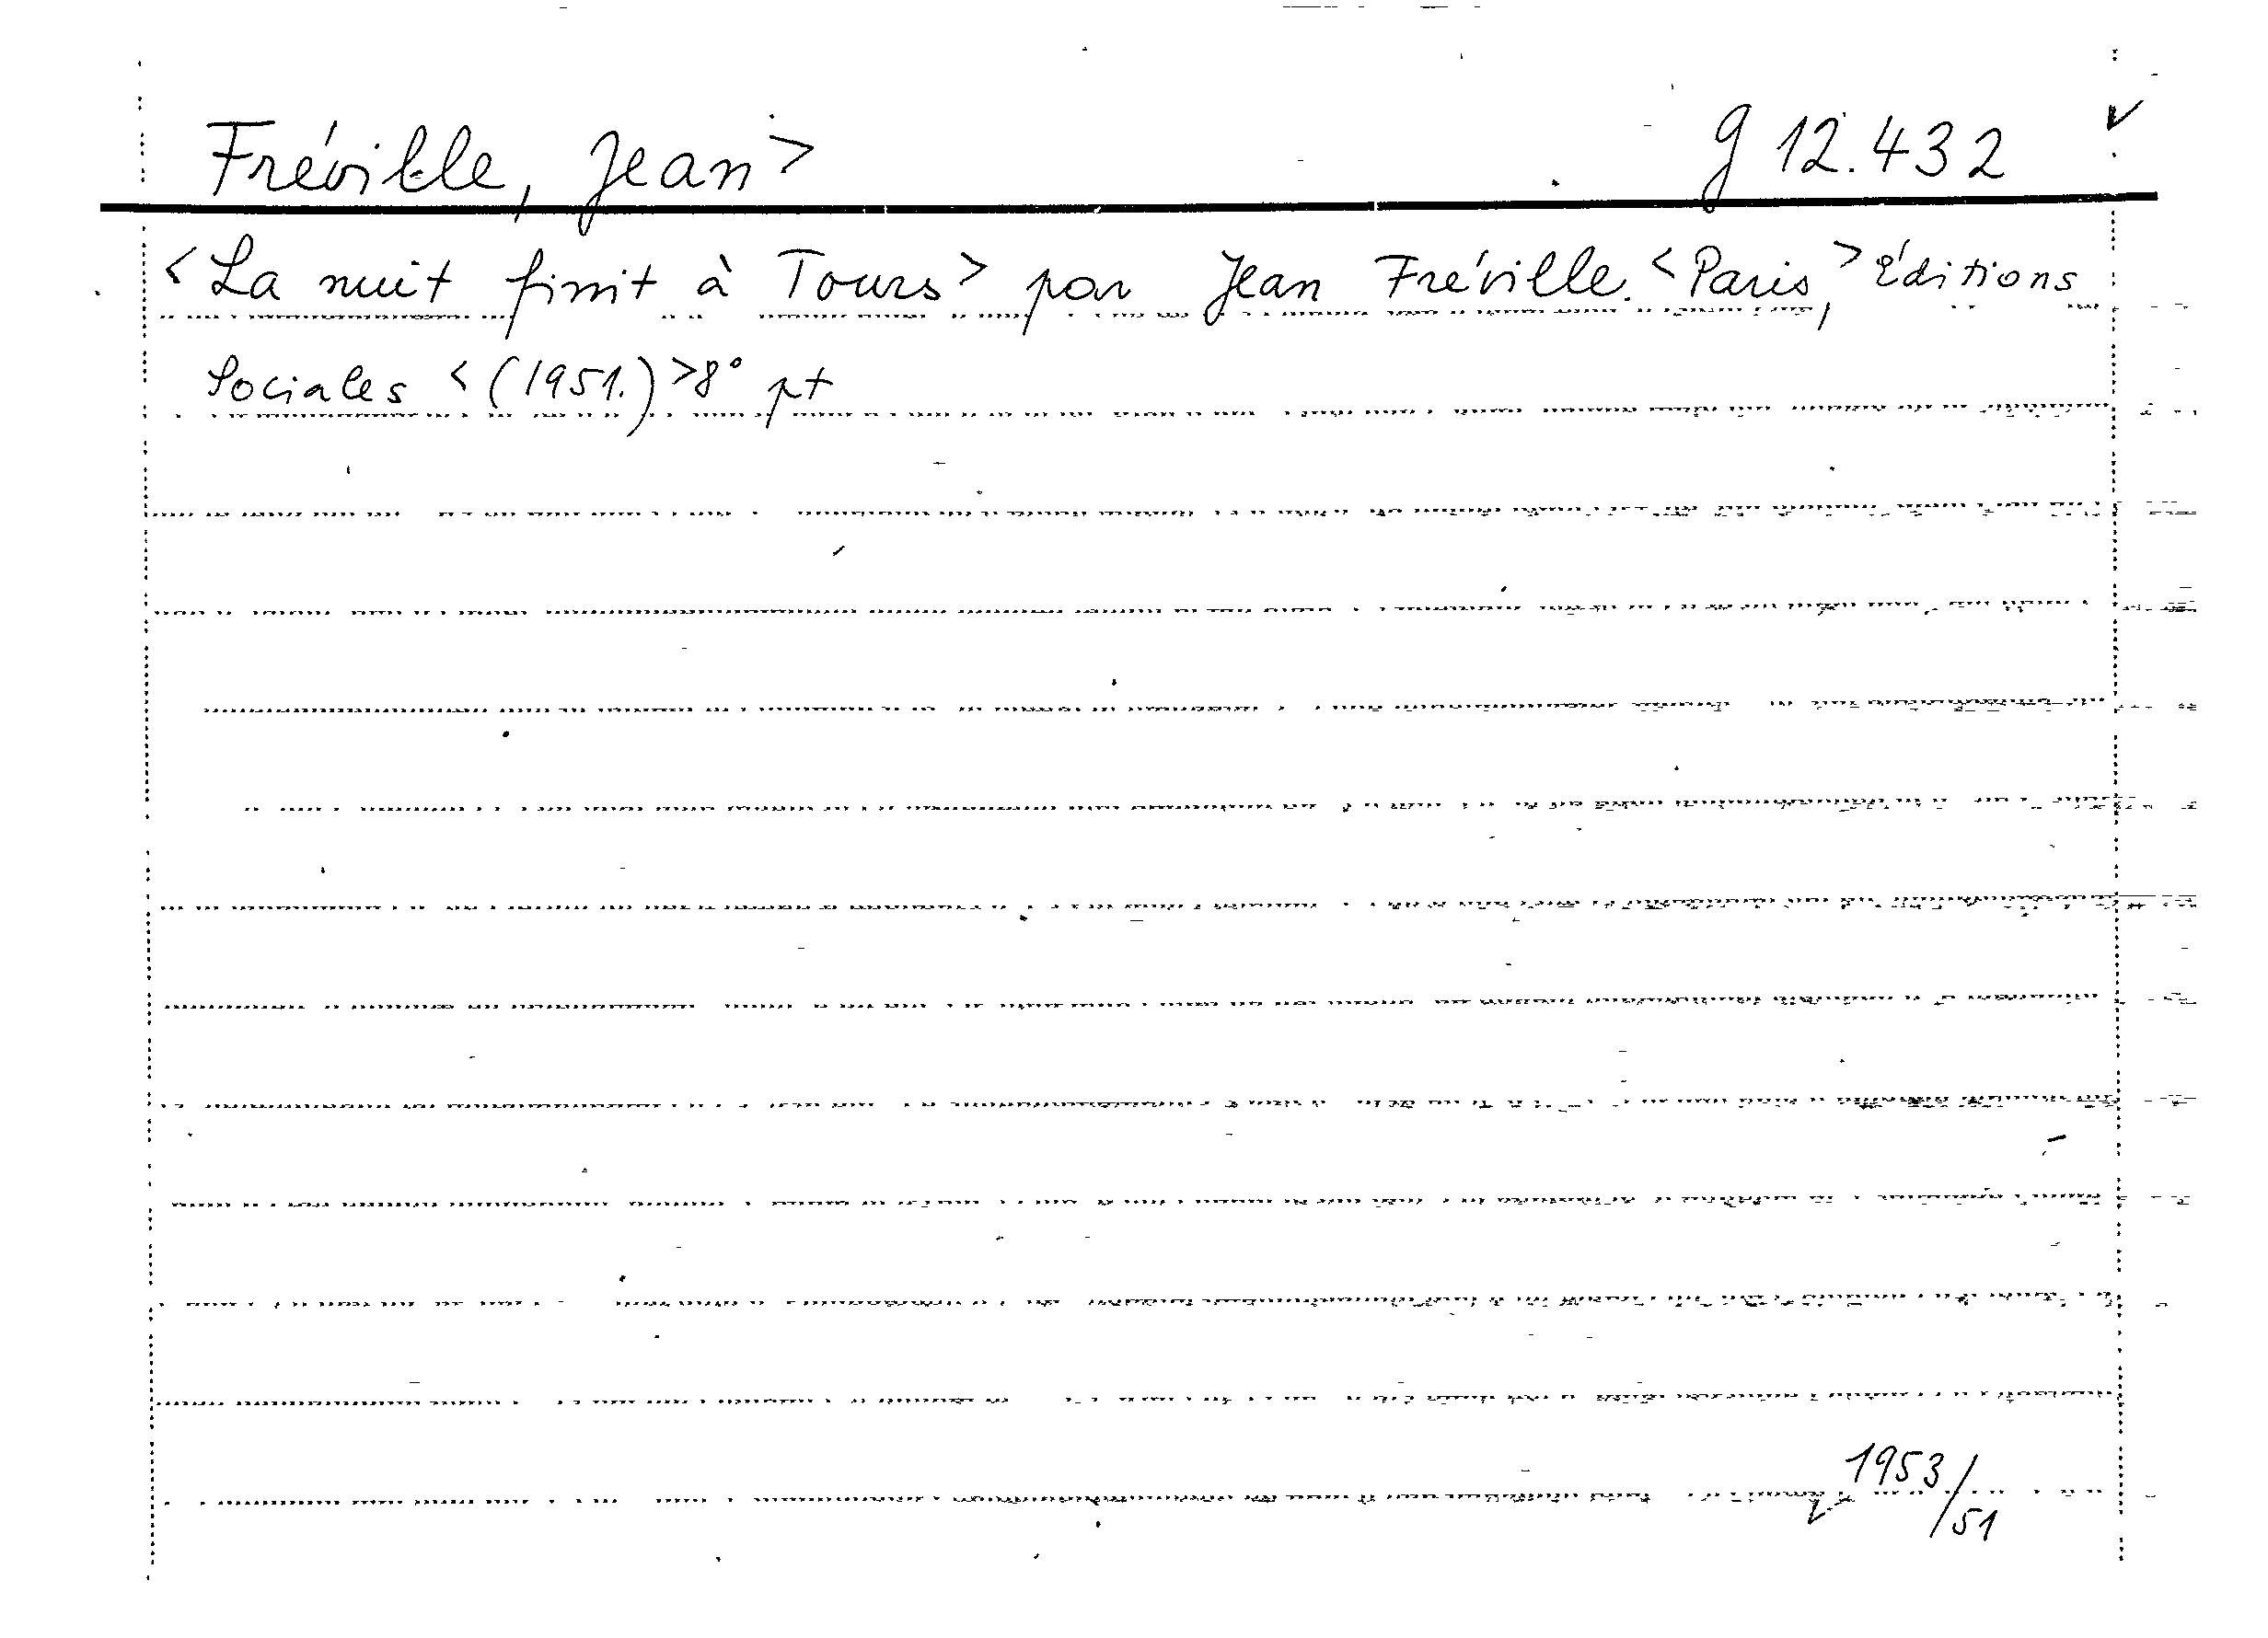 Fréville, Jean> g 12.432 ✓
<La nuit finit à Tours> par Jean Fréville. <Paris,> Éditions
Sociales <(1951.)>8° pt
1953/51